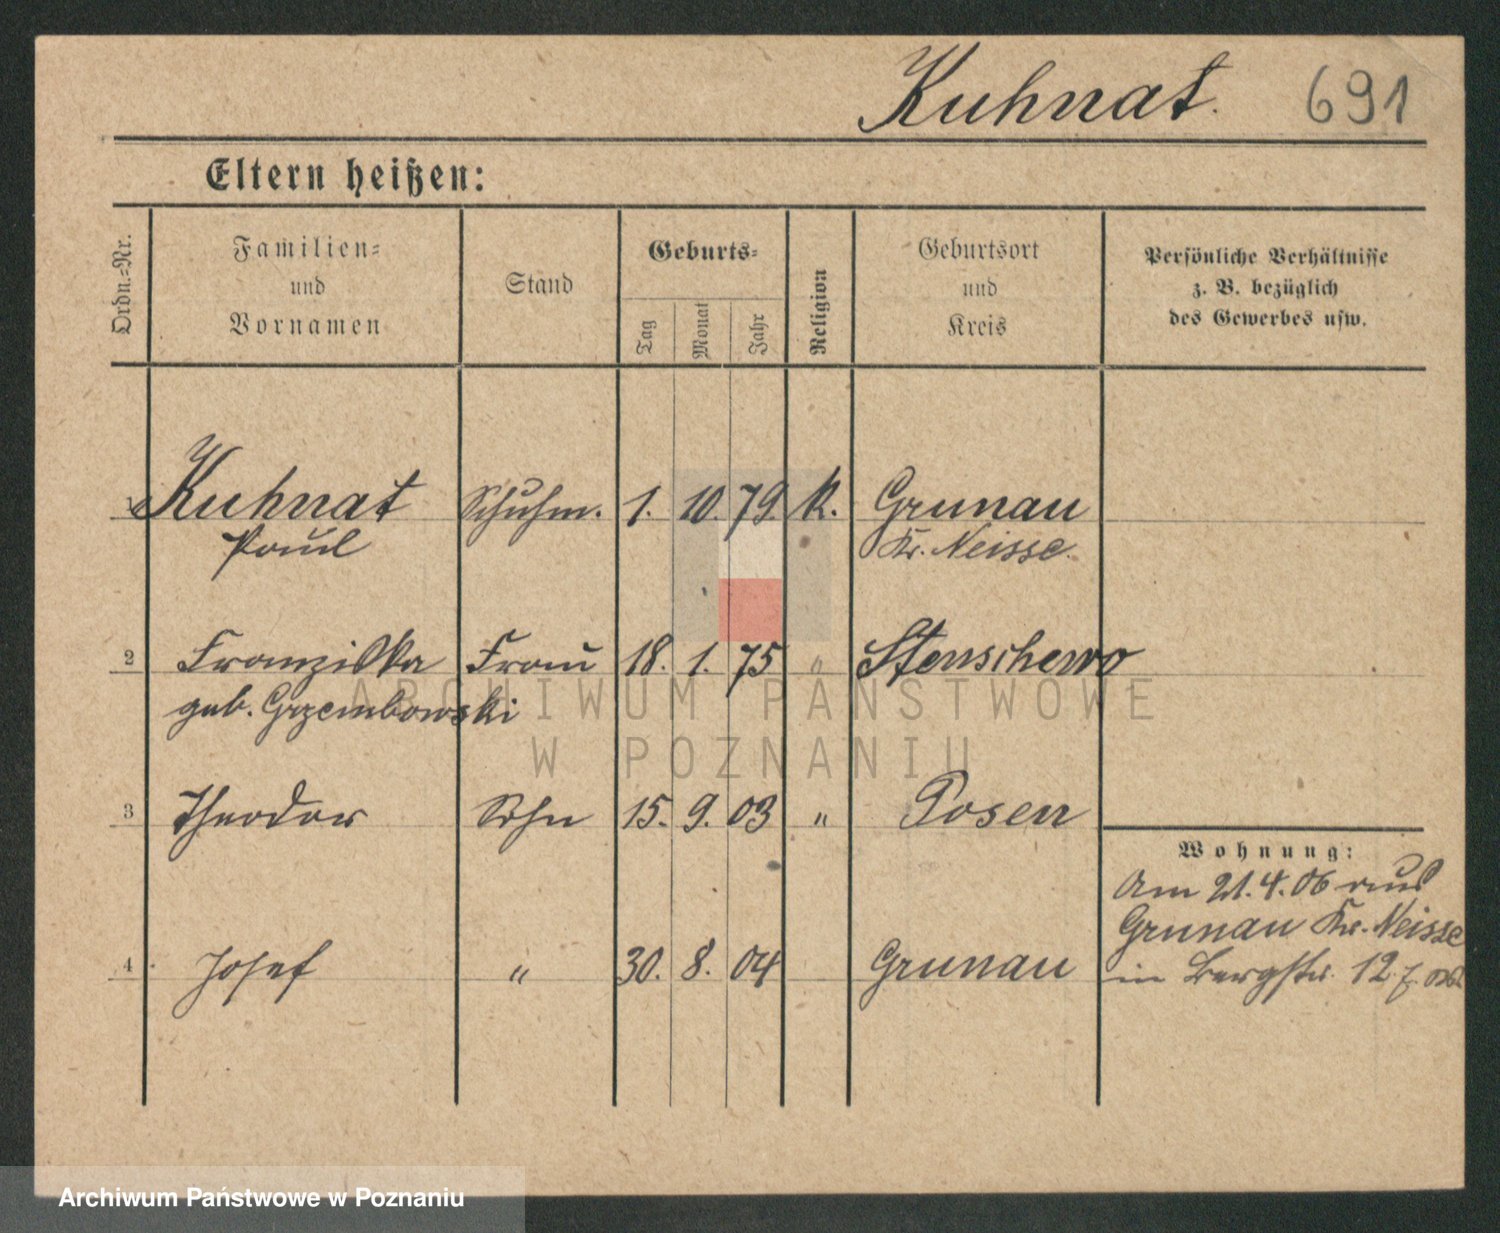 Kuhnat. 691
Eltern heißen:
Ordn.=Nr.
Familien=
und
Vornamen
Stand
Geburts=
Tag
Monat
Jahr
Religion
Geburtsort
und
Kreis
Persönliche Verhältnisse
z. B. bezüglich
des Gewerbes usw.
1 Kuhnat Schuhm. 1. 10. 79. K. Grunau
Paul Kr. Neisse.
2 Franziska Frau 18. 1. 75 " Stenschewo
geb. Grzembowski
3 Theodor Sohn 15. 9. 03 " Posen
4 Josef " 30. 8. 04 Grunau
Wohnung:
Am 21.4.06 aus
Grunau Kr. Neisse
in Bergstr. 12
ARCHIWUM PAŃSTWOWE
W POZNANIU
Archiwum Państwowe w Poznaniu